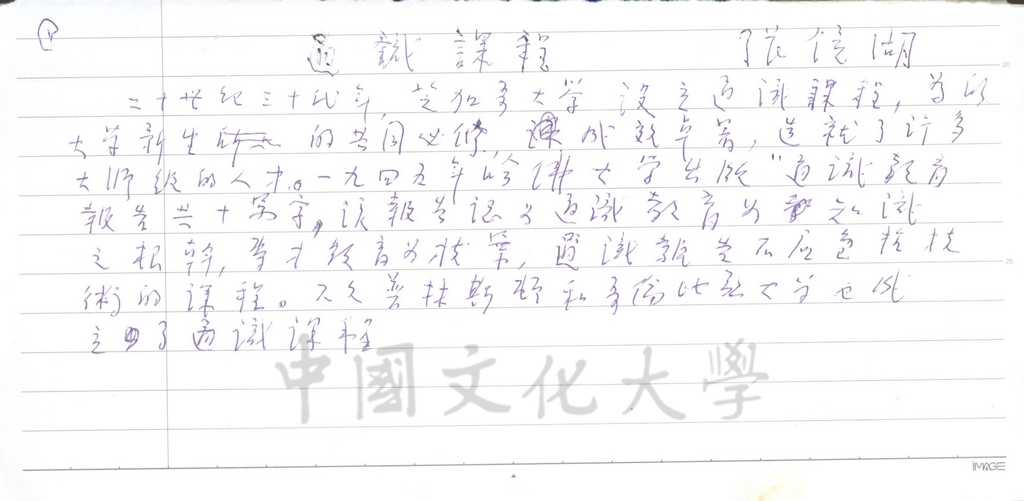 通識課程 張鏡湖
二十世紀三十代年,芝加哥大學設立通識課程,為以
大学新生的共同必修,課成效卓著,造就了許多
大師級的人才。一九四五年哈佛大学出版"通識教育
報告共十萬字,該報告認為通識教育為知識
之根幹,專才教育為枝葉,通識報告不应包括技
術的課程。不久普林斯頓和哥倫比亞大学也成
立了通識課程
中國文化大學
IMAGE